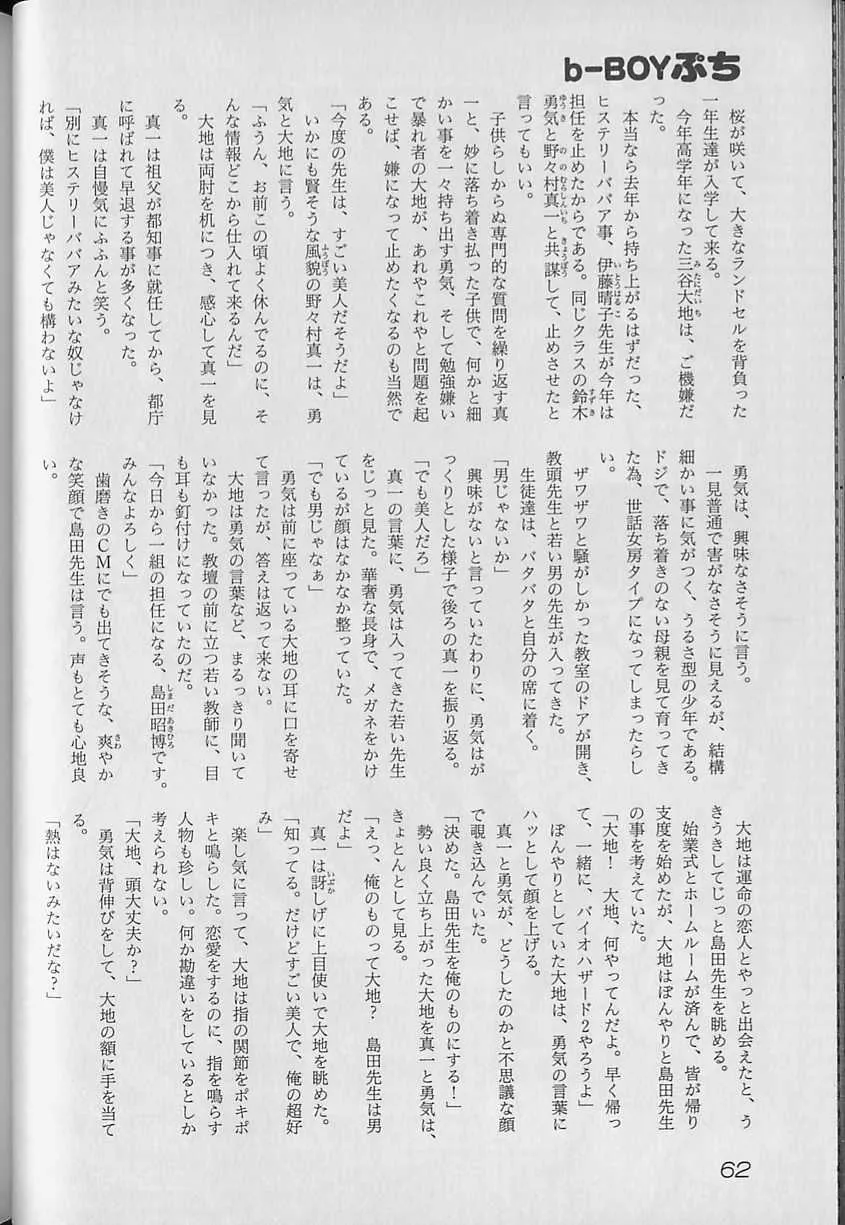 b-BOYぷち
桜が咲いて、大きなランドセルを背負った
一年生達が入学して来る。
今年高学年になった三谷大地は、ご機嫌だ
った。
本当なら去年から持ち上がるはずだった、
ヒステリーババア事、伊藤晴子先生が今年は
担任を止めたからである。同じクラスの鈴木
勇気と野々村真一と共謀して、止めさせたと
言ってもいい。
子供らしからぬ専門的な質問を繰り返す真
一と、妙に落ち着き払った子供で、何かと細
かい事を一々持ち出す勇気、そして勉強嫌い
で暴れ者の大地が、あれやこれやと問題を起
こせば、嫌になって止めたくなるのも当然で
ある。
「今度の先生は、すごい美人だそうだよ」
いかにも賢そうな風貌の野々村真一は、勇
気と大地に言う。
「ふうん、お前この頃よく休んでるのに、そ
んな情報どこから仕入れて来るんだ」
大地は両肘を机につき、感心して真一を見
る。
真一は祖父が都知事に就任してから、都庁
に呼ばれて早退する事が多くなった。
真一は自慢気にふふんと笑う。
「別にヒステリーババアみたいな奴じゃなけ
れば、僕は美人じゃなくても構わないよ」
勇気は、興味なさそうに言う。
一見普通で害がなさそうに見えるが、結構
細かい事に気がつく、うるさ型の少年である。
ドジで、落ち着きのない母親を見て育ってき
た為、世話女房タイプになってしまったらし
い。
ザワザワと騒がしかった教室のドアが開き、
教頭先生と若い男の先生が入ってきた。
生徒達は、バタバタと自分の席に着く。
「男じゃないか」
興味がないと言っていたわりに、勇気はが
っくりとした様子で後ろの真一を振り返る。
「でも美人だろ」
真一の言葉に、勇気は入ってきた若い先生
をじっと見た。華奢な長身で、メガネをかけ
ているが顔はなかなか整っていた。
「でも男じゃなぁ」
勇気は前に座っている大地の耳に口を寄せ
て言ったが、答えは返って来ない。
大地は勇気の言葉など、まるっきり聞いて
いなかった。教壇の前に立つ若い教師に、目
も耳も釘付けになっていたのだ。
「今日から一組の担任になる、島田昭博です。
みんなよろしく」
歯磨きのCMにでも出てきそうな、爽やか
な笑顔で島田先生は言う。声もとても心地良
い。
大地は運命の恋人とやっと出会えたと、う
きうきしてじっと島田先生を眺める。
始業式とホームルームが済んで、皆が帰り
支度を始めたが、大地はぼんやりと島田先生
の事を考えていた。
「大地！ 大地、何やってんだよ。早く帰っ
て、一緒に、バイオハザード2やろうよ」
ぼんやりとしていた大地は、勇気の言葉に
ハッとして顔を上げる。
真一と勇気が、どうしたのかと不思議な顔
で覗き込んでいた。
「決めた。島田先生を俺のものにする！」
勢い良く立ち上がった大地を真一と勇気は、
きょとんとして見る。
「えっ、俺のものって大地？ 島田先生は男
だよ」
真一は訝しげに上目使いで大地を眺めた。
「知ってる。だけどすごい美人で、俺の超好
み」
楽し気に言って、大地は指の関節をポキポ
キと鳴らした。恋愛をするのに、指を鳴らす
人物も珍しい。何か勘違いをしているとしか
考えられない。
「大地、頭大丈夫か？」
勇気は背伸びをして、大地の額に手を当て
る。
「熱はないみたいだな？」
62